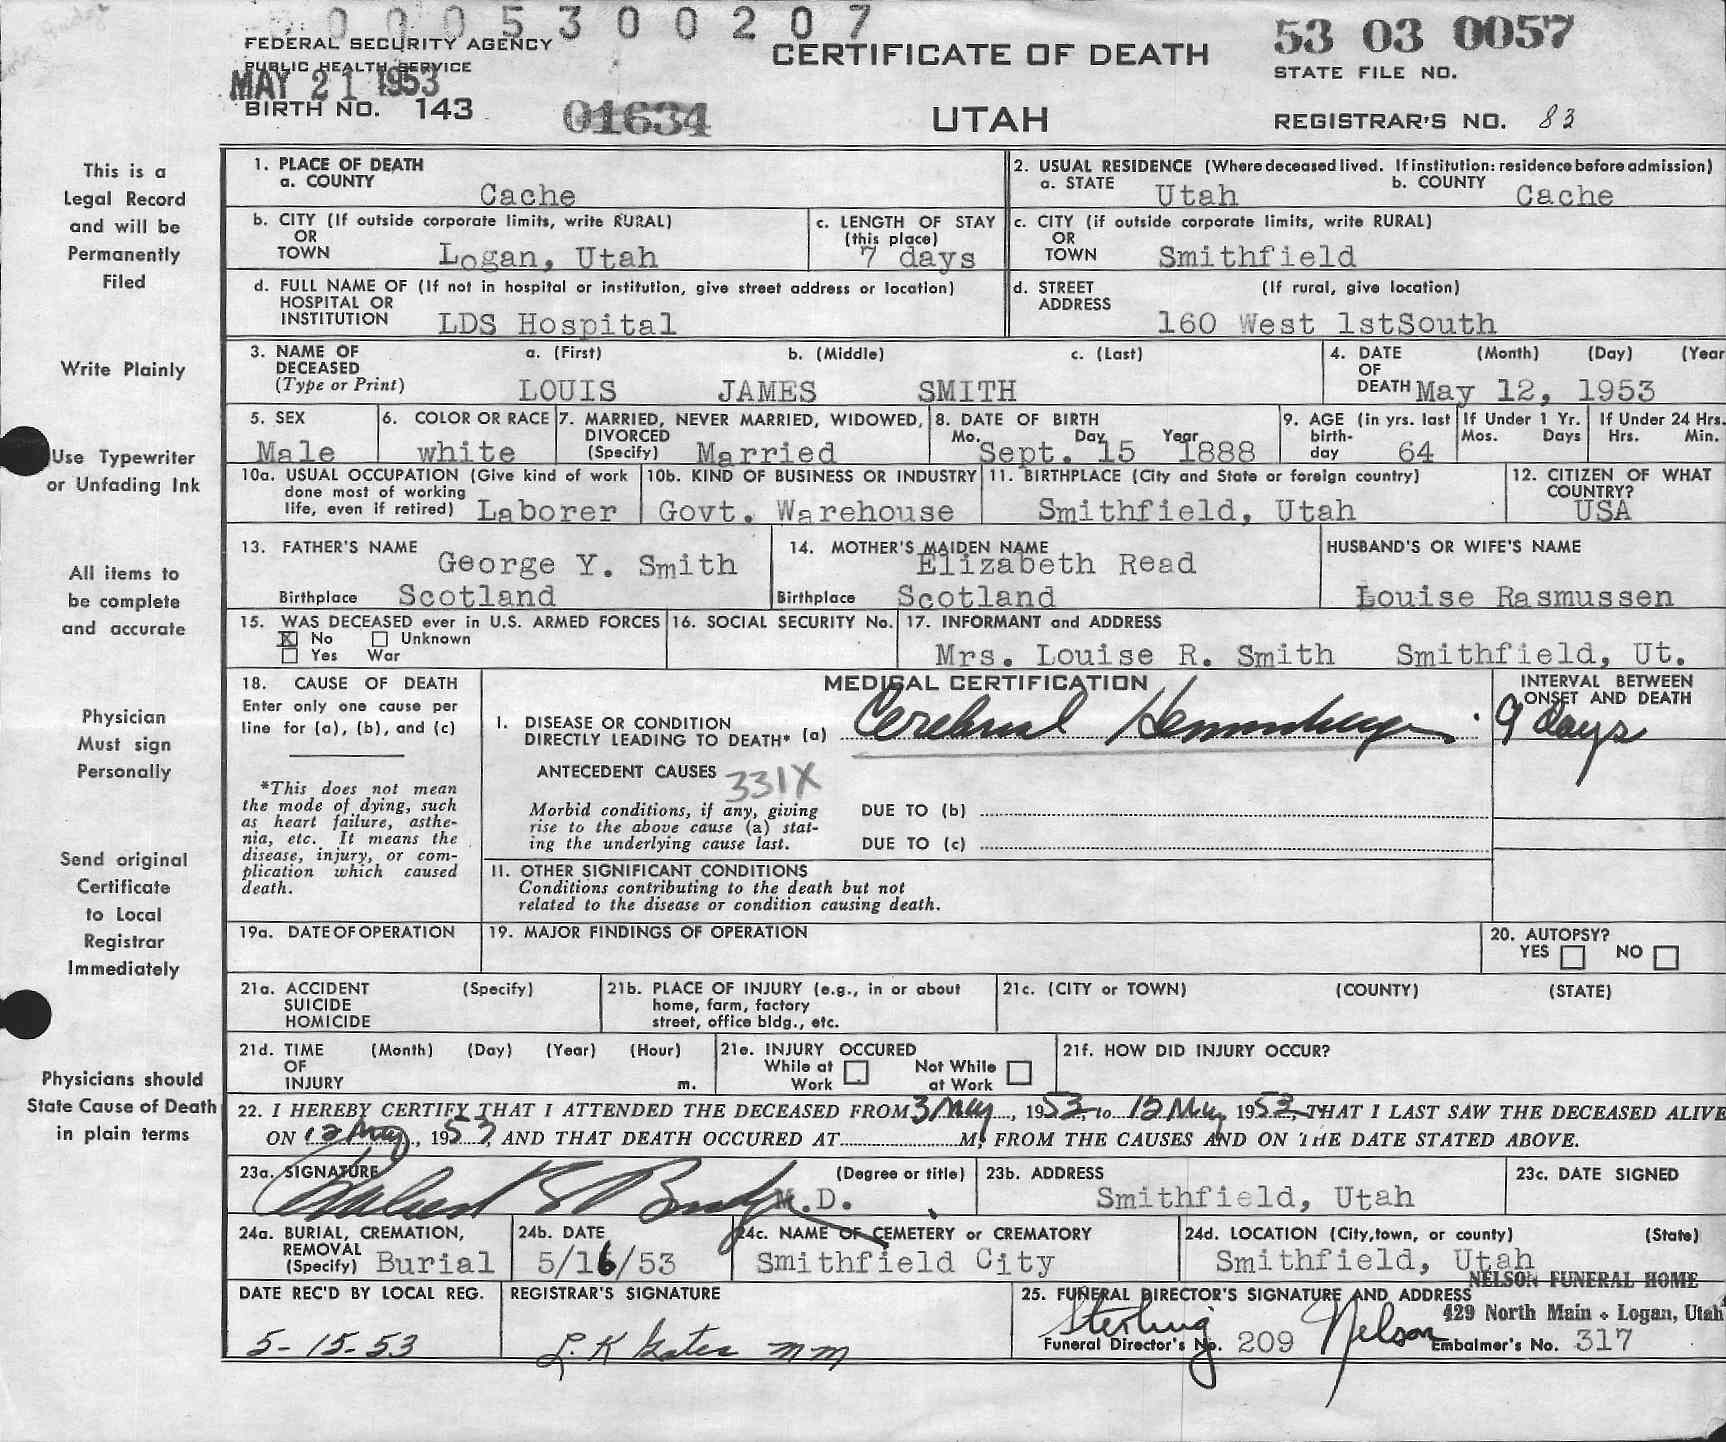 0005300207
FEDERAL SECURITY AGENCY
PUBLIC HEALTH SERVICE
MAY 21 1953
BIRTH NO. 143
01634
CERTIFICATE OF DEATH
UTAH
53 03 0057
STATE FILE NO.
REGISTRAR'S NO. 83
This is a
Legal Record
and will be
Permanently
Filed
Write Plainly
Use Typewriter
or Unfading Ink
All items to
be complete
and accurate
Physician
Must sign
Personally
Send original
Certificate
to Local
Registrar
Immediately
Physicians should
State Cause of Death
in plain terms
1. PLACE OF DEATH
a. COUNTY Cache
2. USUAL RESIDENCE (Where deceased lived. If institution: residence before admission)
a. STATE Utah b. COUNTY Cache
b. CITY (If outside corporate limits, write RURAL)
OR
TOWN Logan, Utah
c. LENGTH OF STAY
(this place)
7 days
c. CITY (if outside corporate limits, write RURAL)
OR
TOWN Smithfield
d. FULL NAME OF (If not in hospital or institution, give street address or location)
HOSPITAL OR
INSTITUTION LDS Hospital
d. STREET (If rural, give location)
ADDRESS
160 West 1stSouth
3. NAME OF a. (First) b. (Middle) c. (Last)
DECEASED
(Type or Print) LOUIS JAMES SMITH
4. DATE (Month) (Day) (Year
OF
DEATH May 12, 1953
5. SEX
Male
6. COLOR OR RACE
white
7. MARRIED, NEVER MARRIED, WIDOWED,
DIVORCED
(Specify) Married
8. DATE OF BIRTH
Mo. Day Year
Sept. 15 1888
9. AGE (in yrs. last
birth-
day 64
If Under 1 Yr.
Mos. Days
If Under 24 Hrs.
Hrs. Min.
10a. USUAL OCCUPATION (Give kind of work
done most of working
life, even if retired) Laborer
10b. KIND OF BUSINESS OR INDUSTRY
Govt. Warehouse
11. BIRTHPLACE (City and State or foreign country)
Smithfield, Utah
12. CITIZEN OF WHAT
COUNTRY?
USA
13. FATHER'S NAME
George Y. Smith
Birthplace Scotland
14. MOTHER'S MAIDEN NAME
Elizabeth Read
Birthplace Scotland
HUSBAND'S OR WIFE'S NAME
Louise Rasmussen
15. WAS DECEASED ever in U.S. ARMED FORCES
X No Unknown
Yes War
16. SOCIAL SECURITY No.
17. INFORMANT and ADDRESS
Mrs. Louise R. Smith Smithfield, Ut.
18. CAUSE OF DEATH
Enter only one cause per
line for (a), (b), and (c)
*This does not mean
the mode of dying, such
as heart failure, asthe-
nia, etc. It means the
disease, injury, or com-
plication which caused
death.
MEDICAL CERTIFICATION
I. DISEASE OR CONDITION
DIRECTLY LEADING TO DEATH* (a) Cerebral Hemorrhage
ANTECEDENT CAUSES 331X
Morbid conditions, if any, giving
rise to the above cause (a) stat-
ing the underlying cause last.
DUE TO (b)
DUE TO (c)
II. OTHER SIGNIFICANT CONDITIONS
Conditions contributing to the death but not
related to the disease or condition causing death.
INTERVAL BETWEEN
ONSET AND DEATH
9 days
19a. DATE OF OPERATION
19. MAJOR FINDINGS OF OPERATION
20. AUTOPSY?
YES NO
21a. ACCIDENT (Specify)
SUICIDE
HOMICIDE
21b. PLACE OF INJURY (e.g., in or about
home, farm, factory
street, office bldg., etc.
21c. (CITY or TOWN) (COUNTY) (STATE)
21d. TIME (Month) (Day) (Year) (Hour)
OF
INJURY m.
21e. INJURY OCCURED
While at Not While
Work at Work
21f. HOW DID INJURY OCCUR?
22. I HEREBY CERTIFY THAT I ATTENDED THE DECEASED FROM 3 May, 1953, to 12 May 1953, THAT I LAST SAW THE DECEASED ALIVE
ON 12 May, 1953, AND THAT DEATH OCCURED AT M, FROM THE CAUSES AND ON THE DATE STATED ABOVE.
23a. SIGNATURE (Degree or title)
M.D.
23b. ADDRESS
Smithfield, Utah
23c. DATE SIGNED
24a. BURIAL, CREMATION,
REMOVAL
(Specify) Burial
24b. DATE
5/16/53
24c. NAME OF CEMETERY or CREMATORY
Smithfield City
24d. LOCATION (City, town, or county) (State)
Smithfield, Utah
DATE REC'D BY LOCAL REG.
5-15-53
REGISTRAR'S SIGNATURE
L. K Gates mm
25. FUNERAL DIRECTOR'S SIGNATURE AND ADDRESS
NELSON FUNERAL HOME
429 North Main • Logan, Utah
Sterling Nelson
Funeral Director's No. 209
Embalmer's No. 317